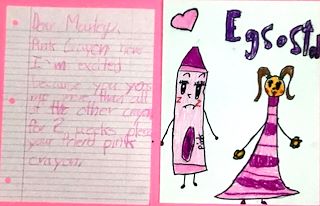 Dear
Pink Crayon here
I'm excited
because you
me more than all
of the other crayons
for 2 weeks please
your friend pink
crayon.
Pink